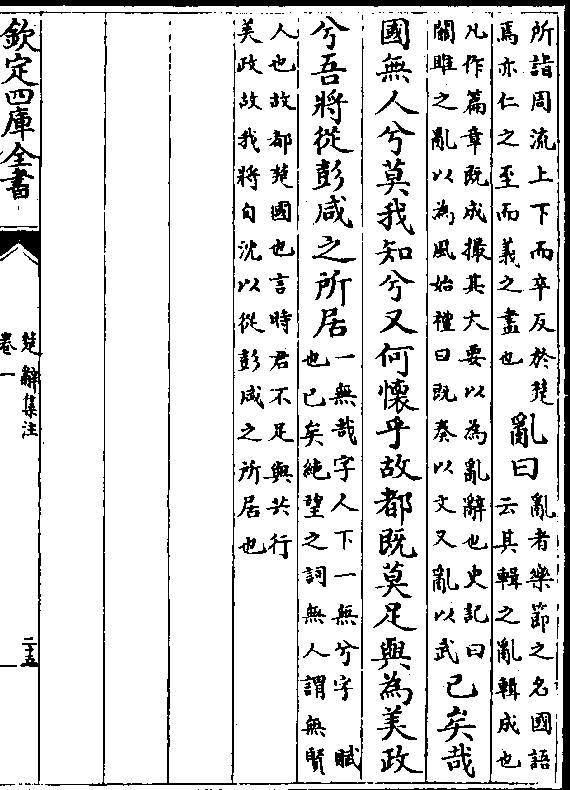 所詣周流上下而卒反於楚
焉亦仁之至而義之盡也
亂曰
亂者樂節之名國語
云其輯之亂輯成也
凡作篇章既成撮其大要以為亂辭也史記曰
關雎之亂以為風始禮曰既奏以文又亂以武
已矣哉
國無人兮莫我知兮又何懷乎故都既莫足與為美政
兮吾將從彭咸之所居
一無哉字人下一無兮字 賦
也已矣絶望之詞無人謂無賢
人也故都楚國也言時君不足與共行
美政故我將自沈以從彭咸之所居也
欽定四庫全書
楚辭集注
卷一
二十五